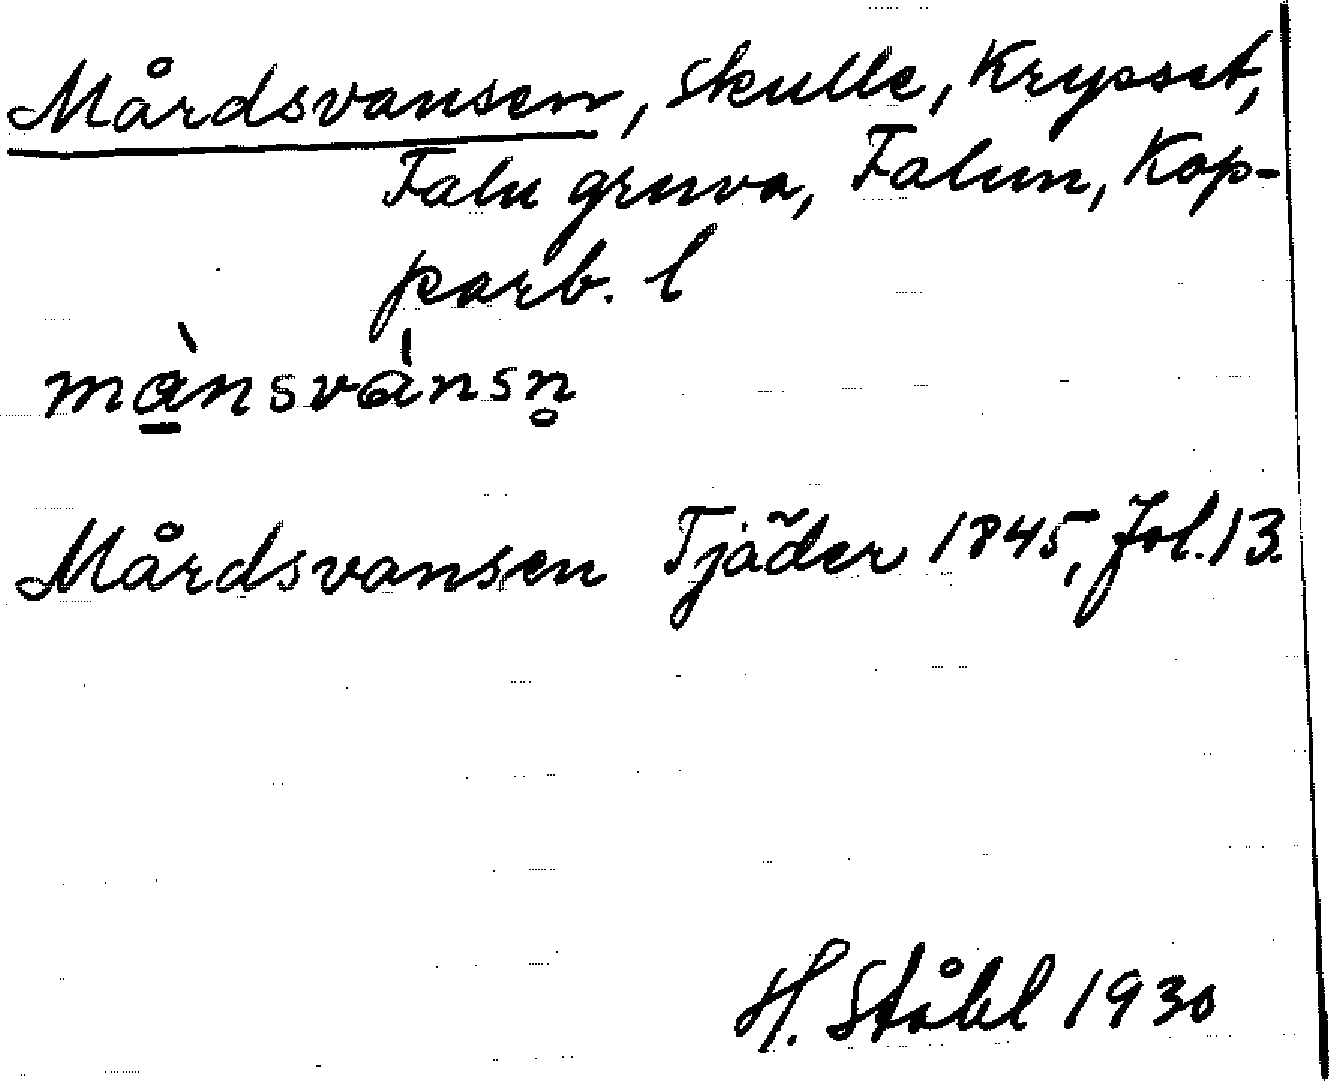 Mårdsvansen, skulle, Krysset,
Falu gruva, Falun, Kop-
parb. l
mà̱nsvànsn̥
Mårdsvansen Tjäder 1845, fol. 13.
H. Ståhl 1930